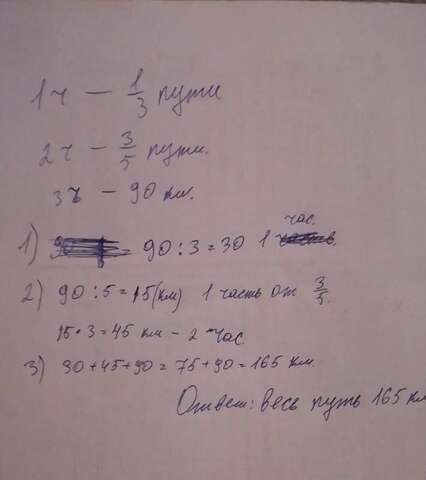 1ч — 1/3 пути
2ч — 3/5 пути.
3ч — 90 км.
час.
1) = 90 : 3 = 30 1
2) 90 : 5 = 15 (км) 1 часть от 3/5.
15 · 3 = 45 км — 2 час
3) 30 + 45 + 90 = 75 + 90 = 165 км.
Ответ: весь путь 165 км